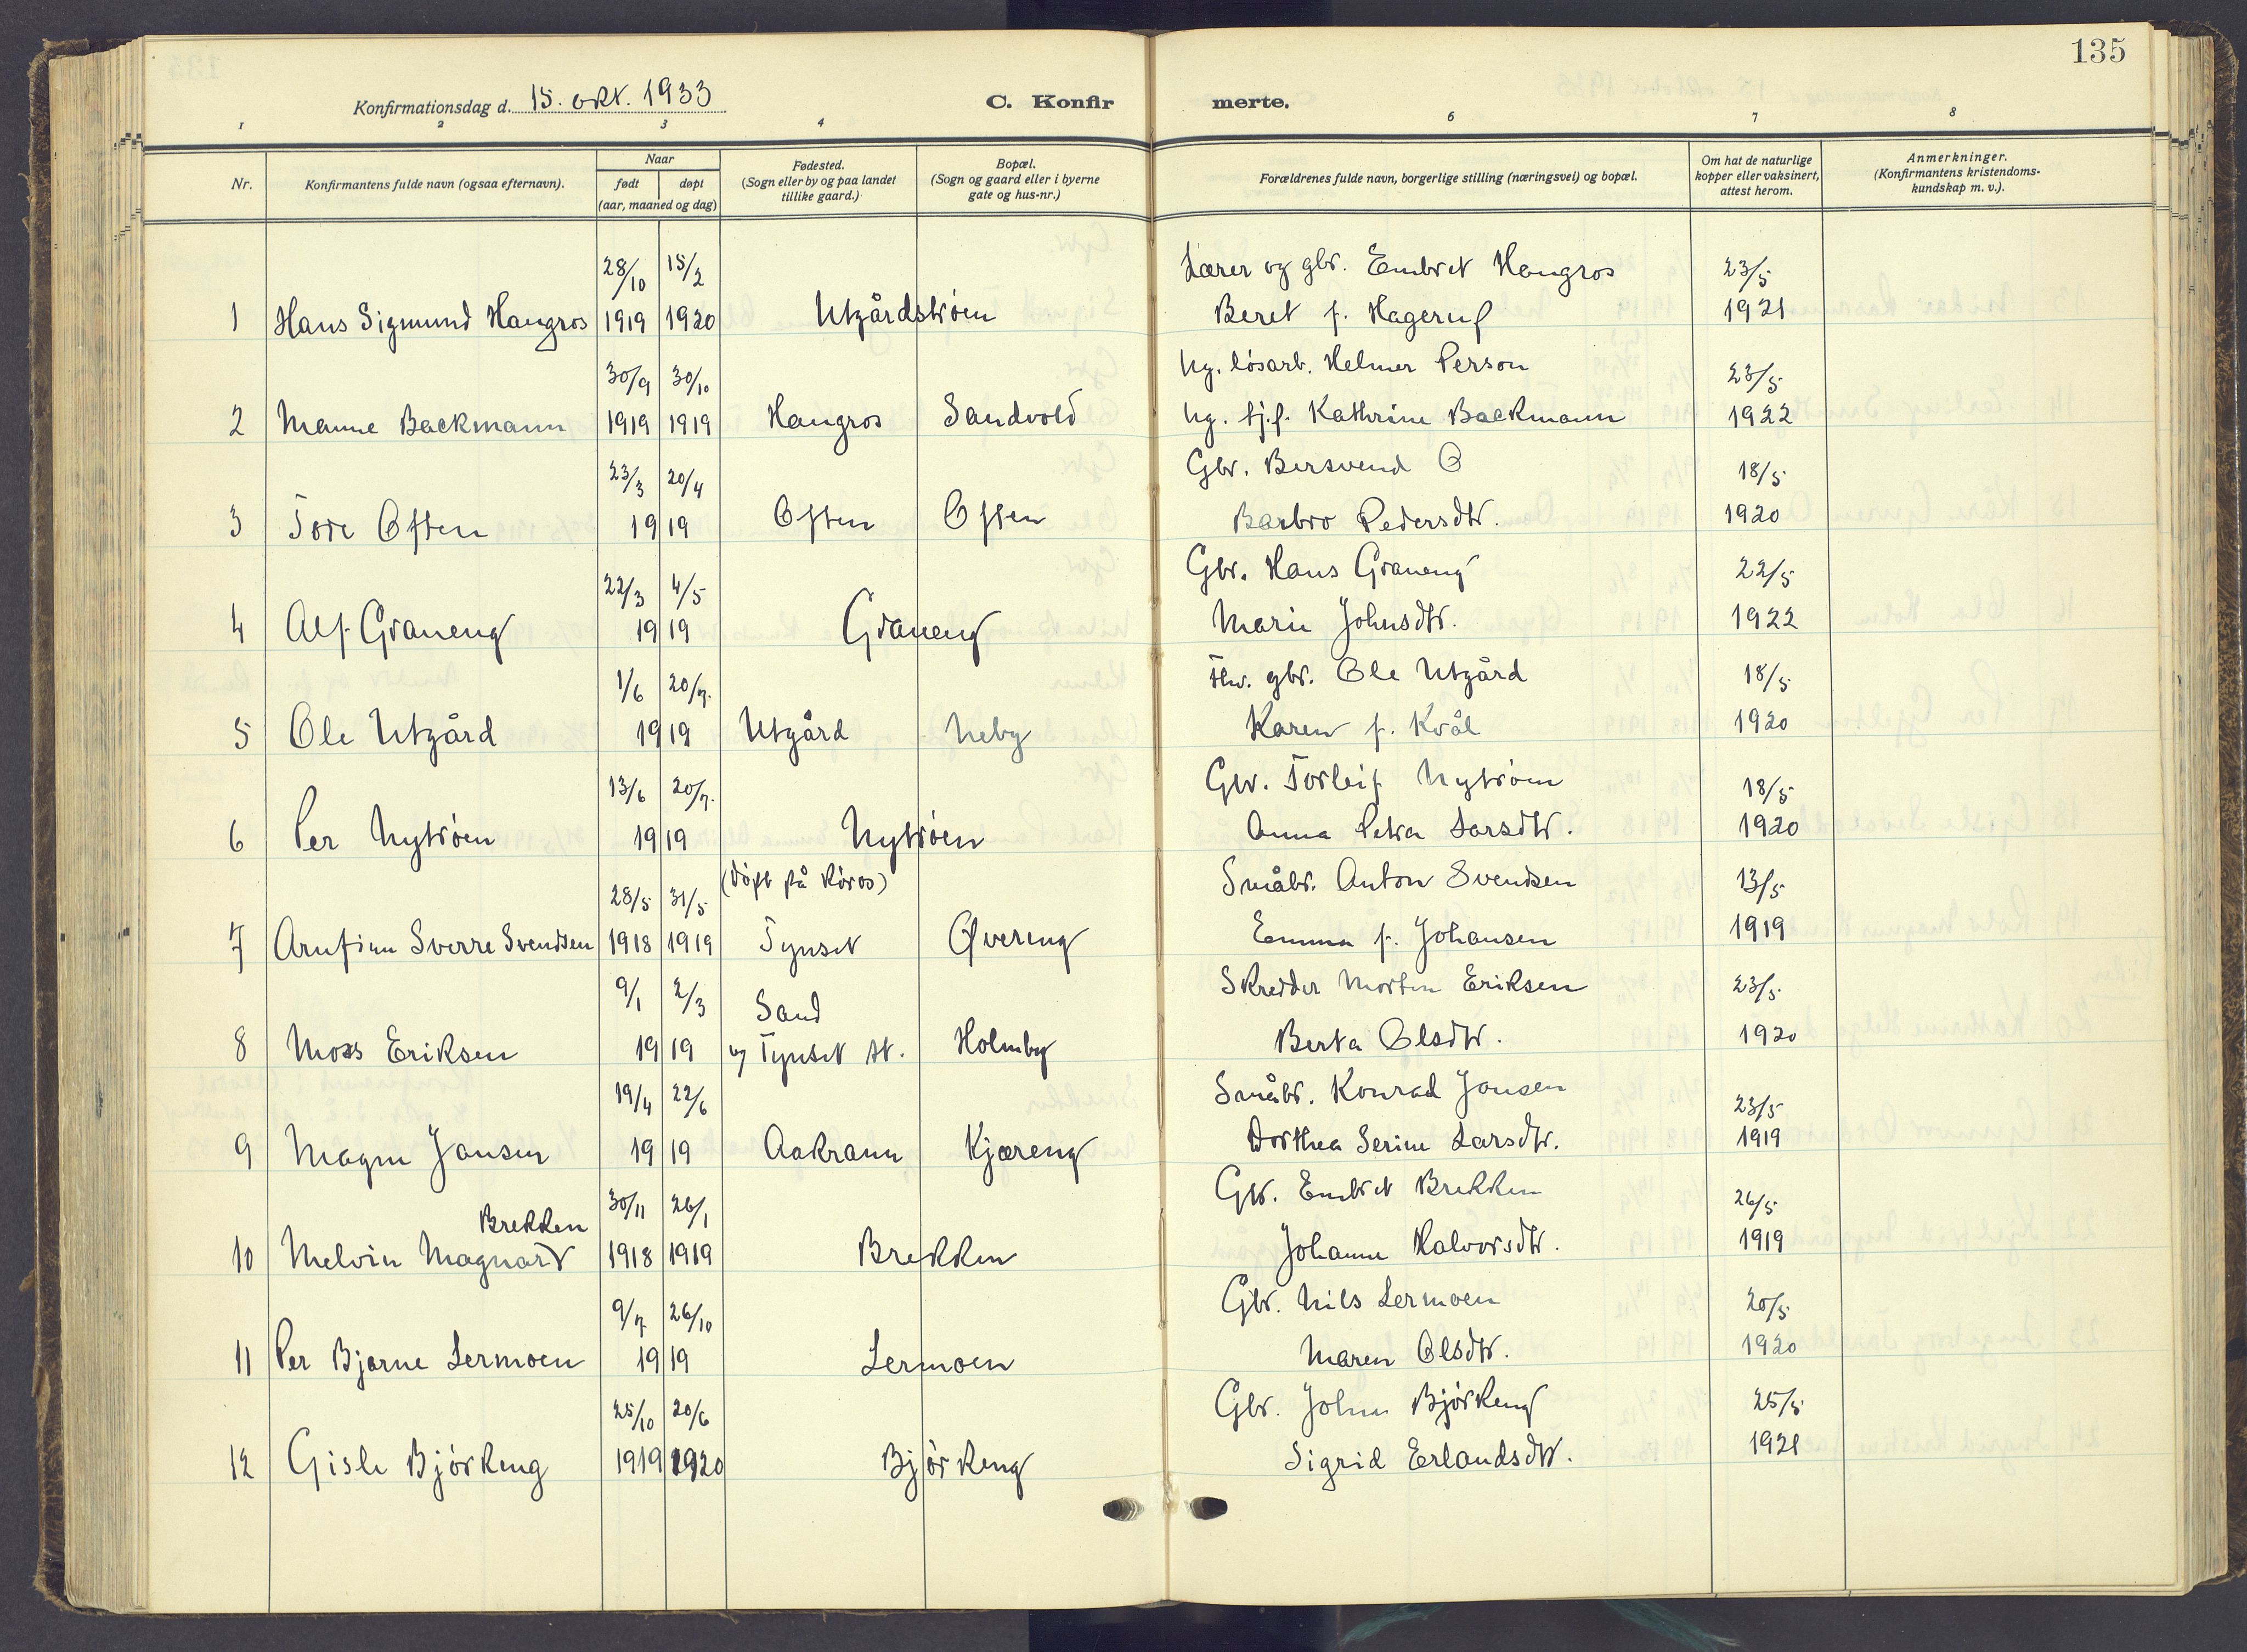 135
Konfirmationsdag d. 15. okt. 1933
C. Konfirmerte.
1 2 3 4 6 7 8
Nr.
Konfirmantens fulde navn (ogsaa efternavn).
Naar
født døpt
(aar, maaned og dag)
Fødested.
(Sogn eller by og paa landet
tillike gaard.)
Bopæl.
(Sogn og gaard eller i byerne
gate og hus-nr.)
Forældrenes fulde navn, borgerlige stilling (næringsvei) og bopæl.
Om hat de naturlige
kopper eller vaksinert,
attest herom.
Anmerkninger.
(Konfirmantens kristendoms-
kundskap m. v.).
28/10 15/2 Lærer og gbr. Embret Haugros 23/5
1 Hans Sigmund Haugros 1919 1920 Utgårdstrøen Beret f. Hagerup 1921
30/9 30/10 Ug. løsarb. Helmer Person 23/5
2 Manne Backmann 1919 1919 Haugros Sandvold Ug. tj.p. Kathrine Backmann 1922
23/3 20/4 Gbr. Bersvend O 18/5
3 Tore Often 1919 Often Often Barbro Pedersdtr. 1920
22/3 4/5 Gbr. Hans Graneng 22/5
4 Alf Graneng 1919 Graneng Marie Johnsdtr. 1922
1/6 20/7. Fhv. gbr. Ole Utgård 18/5
5 Ole Utgård 1919 Utgård Neby Karen f. Kvål 1920
13/6 20/7. Gbr. Torleif Nytrøen 18/5
6 Per Nytrøen 1919 Nytrøen Anna Petra Larsdtr. 1920
28/5 31/5 (døpt på Røros) Småbr. Anton Svendsen 13/5
7 Arnfinn Sverre Svendsen 1918 1919 Tynset Øvereng Emma f. Johansen 1919
9/1 2/3 Sand Skredder Morten Eriksen 23/5
8 Moss Eriksen 1919 og Tynset st. Holmby Berta Olsdtr. 1920
19/4 22/6 Småbr. Konrad Jansen 23/5
9 Magne Jansen 1919 Aakrann Kjæreng Dorthea Serine Larsdtr. 1919
Brekken 30/11 26/1 Gbr. Embret Brekken 26/5
10 Melvin Magnard 1918 1919 Brekken Johanne Halvorsdtr. 1919
9/7 26/10 Gbr. Nils Lermoen 20/5
11 Per Bjarne Lermoen 1919 Lermoen Maren Olsdtr. 1920
25/10 20/6 Gbr. John Bjørkeng 25/5
12 Gisle Bjørkeng 1919 1920 Bjørkeng Sigrid Erlandsdtr. 1921